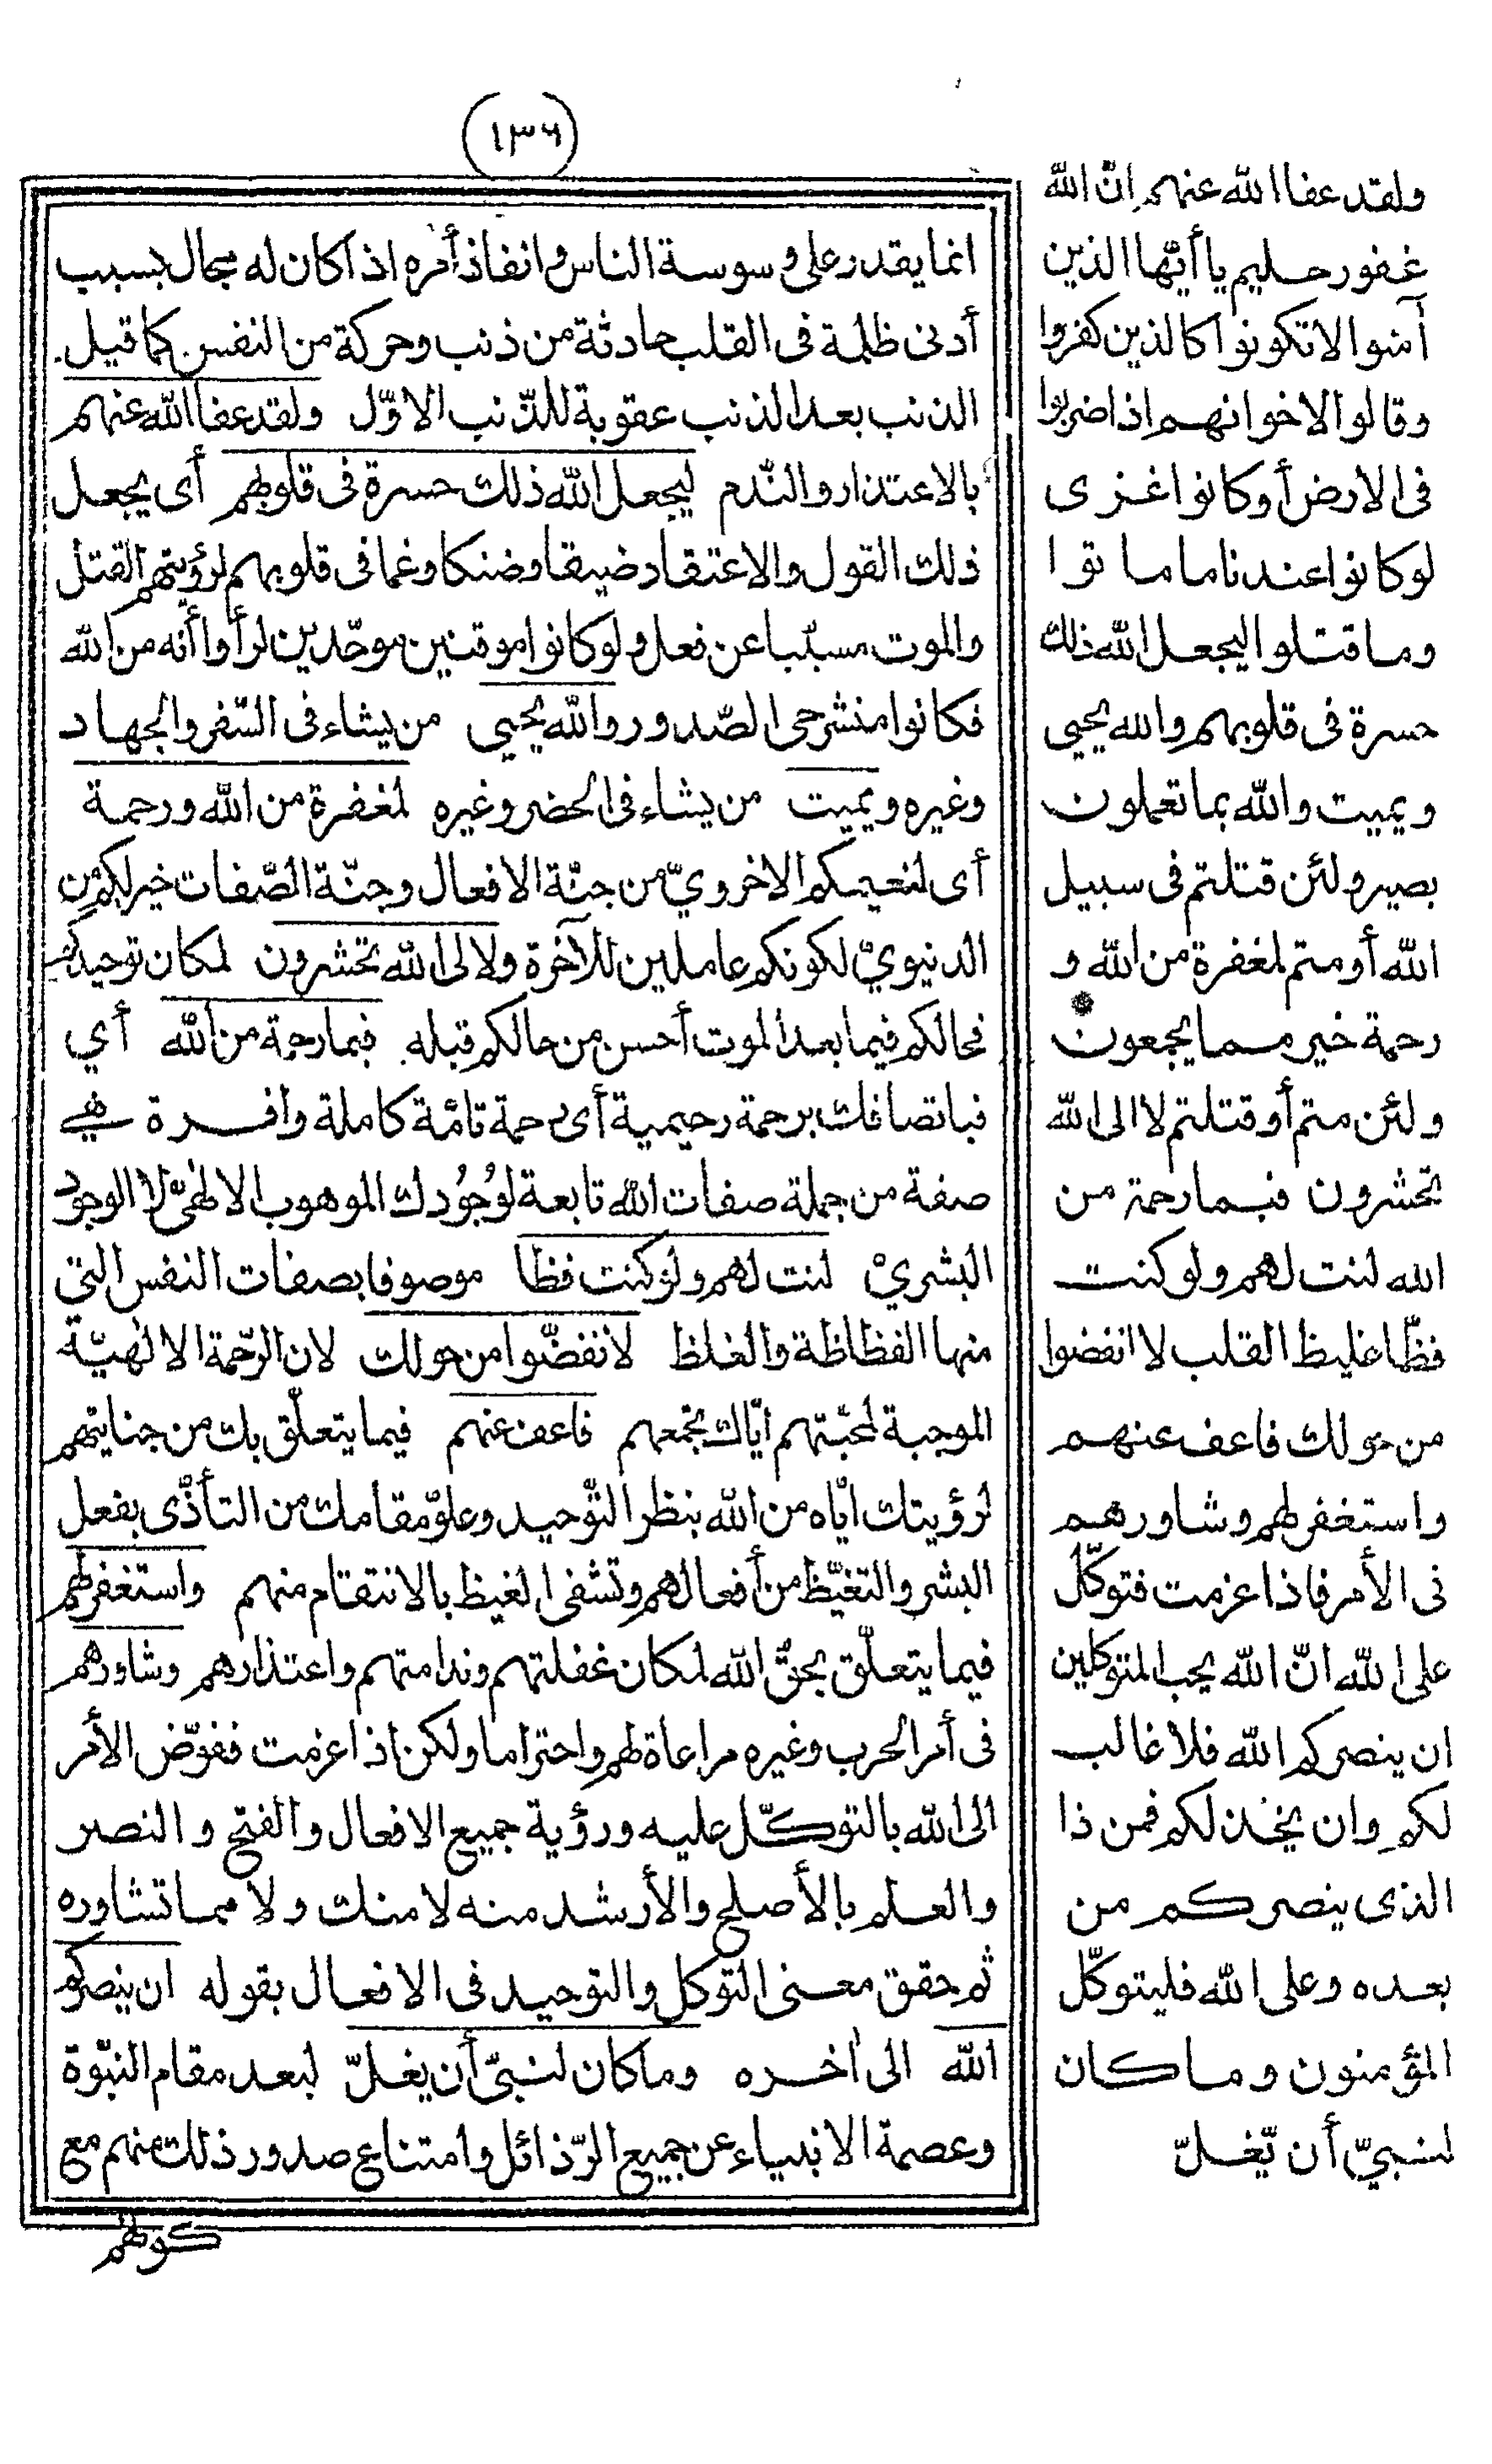 (١٣٦)
ولقد عفا الله عنهم ان الله
غفور حليم يا أيّها الذين
آمنوا لا تكونوا كالذين كفروا
وقالوا لاخوانهم اذا ضربوا
فى الارض أو كانوا غزى
لو كانوا عندنا ما ماتوا
وما قتلوا ليجعل الله ذلك
حسرة فى قلوبهم والله يحيى
ويميت والله بما تعملون
بصير ولئن قتلتم فى سبيل
الله أو متم لمغفرة من الله و
رحمة خير مما يجمعون
ولئن متم أو قتلتم لا الى الله
تحشرون فبما رحمة من
الله لنت لهم ولو كنت
فظّا غليظ القلب لا انفضوا
من حولك فاعف عنهم
واستغفر لهم وشاورهم
فى الأمر فاذا عزمت فتوكّل
على الله انّ الله يحب المتوكلين
ان ينصركم الله فلا غالب
لكم وان يخذلكم فمن ذا
الذى ينصركم من
بعده وعلى الله فليتوكّل
المؤمنون وما كان
لنبيّ أن يّغلّ
انما يقدر على وسوسة الناس وانفاذ أمره اذا كان له مجال بسبب
أدنى ظلمة فى القلب حادثة من ذنب وحركة من النفس كما قيل
الذنب بعد الذنب عقوبة للذّنب الاوّل ولقد عفا الله عنهم
بالاعتذار والنّدم ليجعل الله ذلك حسرة فى قلوبهم أى يجعل
ذلك القول والاعتقاد ضيقا وضنكا وغما فى قلوبهم لرؤيتهم القتل
والموت مسبّبا عن فعل ولو كانوا موقنين موحّدين لرأوا أنه من الله
فكانوا منشرحى الصّدور والله يحيى من يشاء فى السّفر والجهاد
وغيره ويميت من يشاء فى الحضر وغيره لمغفرة من الله ورحمة
أى لنعيمكم الاخرويّ من جنّة الافعال وجنّة الصّفات خير لكم من
الدنيويّ لكونكم عاملين للآخرة ولا لى الله تحشرون لمكان توحيدكم
فحالكم فيما بعد الموت أحسن من حالكم قبله فبما رحمة من الله أي
فباتصافك برحمة رحيمية أى رحمة تامّة كاملة وافرة هي
صفة من جملة صفات الله تابعة لوُجُودك الموهوب الالهىّ لا الوجود
البشريّ لنت لهم ولو كنت فظا موصوفا بصفات النفس التى
منها الفظاظة والغلظ لانفضّوا من حولك لان الرّحمة الالهيّة
الموجبة لمحبّتهم ايّاك تجمعهم فاعف عنهم فيما يتعلّق بك من جنايتهم
لرؤيتك ايّاه من الله بنظر التّوحيد وعلوّ مقامك من التأذّى بفعل
البشر والتغيّظ من أفعالهم وتشفى الغيظ بالانتقام منهم واستغفر لهم
فيما يتعلّق بحقّ الله لمكان غفلتهم وندامتهم واعتذارهم وشاورهم
فى أمر الحرب وغيره مراعاة لهم واحتراما ولكن اذا عزمت ففوّض الأمر
الى الله بالتوكّل عليه ورؤية جميع الافعال والفتح والنصر
والعلم بالأصلح والأرشد منه لا منك ولا مما تشاوره
ثم حقق معنى التوكل والتوحيد فى الافعال بقوله ان ينصركم
الله الى اخره وما كان لنبىّ أن يغلّ لبعد مقام النبّوة
وعصمة الانبياء عن جميع الرّذائل وامتناع صدور ذلك منهم مع
كونهم